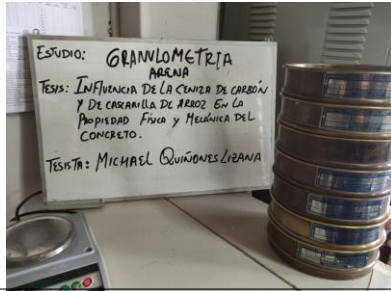 ESTUDIO: GRANULOMETRIA
ARENA
TESIS: INFLUENCIA DE LA CENIZA DE CARBÓN
Y DE CASCARILLA DE ARROZ EN LA
PROPIEDAD FÍSICA Y MECÁNICA DEL
CONCRETO.
TESISTA: MICHAEL QUIÑONES LIZANA